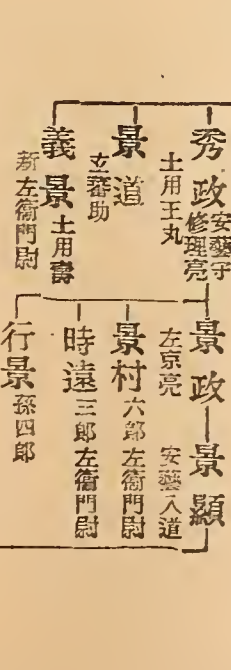 秀政 安藝守 修理亮
土用王丸
景道
玄蕃助
義景 土用壽
新左衞門尉
景政
左京亮
景顯
安藝入道
景村 六郎 左衞門尉
時遠 三郎 左衞門尉
行景 孫四郎